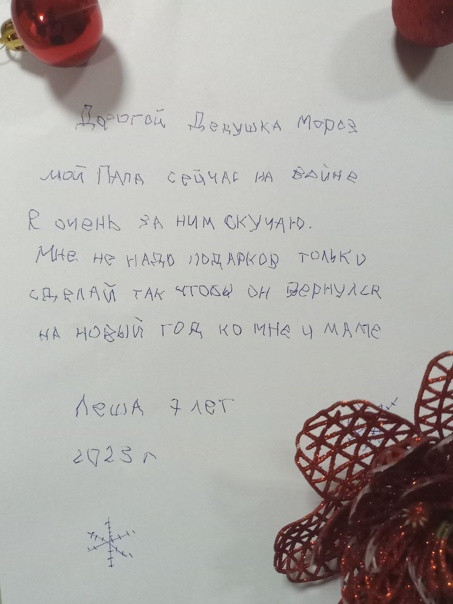 Дорогой Дедушка Мороз
мой Папа сейчас на войне
Я очень за ним скучаю.
Мне не надо подарков только
сделай так чтобы он вернулся
на новый год ко мне и маме
Леша 7 лет
2023 г